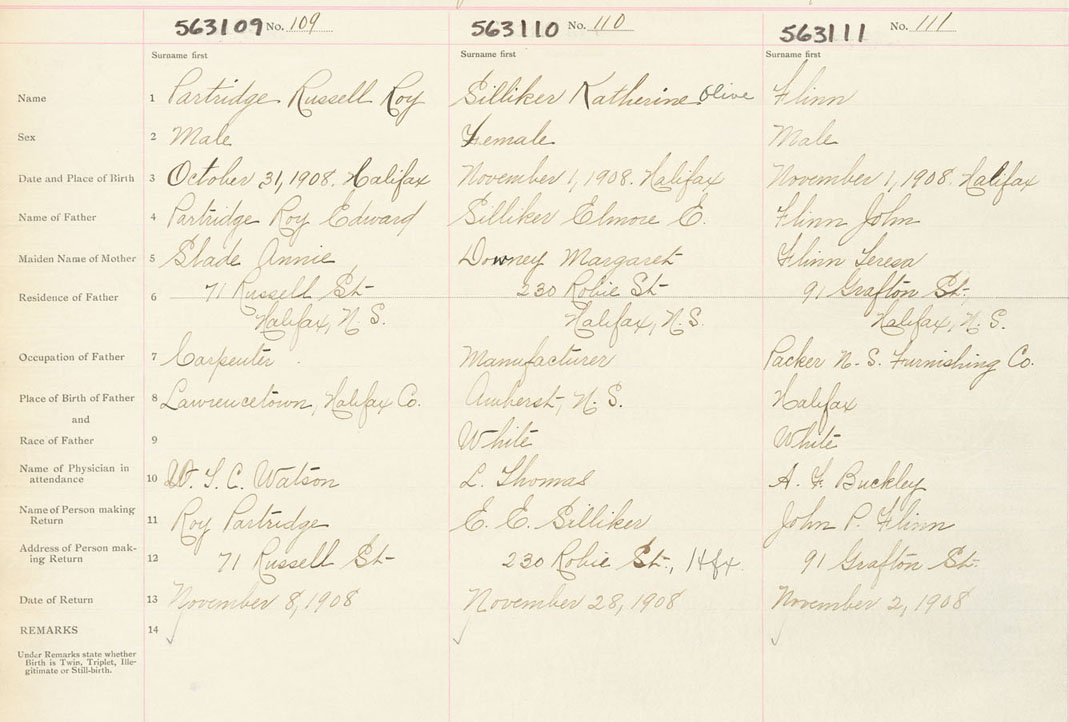 563109 No. 109 563110 No. 110 563111 No. 111
Surname first Surname first Surname first
Name 1 Partridge Russell Roy Silliker Katherine Olive Flinn
Sex 2 Male Female Male
Date and Place of Birth 3 October 31, 1908. Halifax November 1, 1908. Halifax November 1, 1908. Halifax
Name of Father 4 Partridge Roy Edward Silliker Elmore E. Flinn John
Maiden Name of Mother 5 Slade Annie Downey Margaret Flinn Teresa
Residence of Father 6 71 Russell St 230 Robie St 91 Grafton St.
Halifax, N.S. Halifax, N.S. Halifax, N.S.
Occupation of Father 7 Carpenter Manufacturer Packer N.S. Furnishing Co.
Place of Birth of Father 8 Lawrencetown, Halifax Co. Amherst, N.S. Halifax
and
Race of Father 9 White White
Name of Physician in
attendance 10 W. T. C. Watson L. Thomas A. F. Buckley
Name of Person making
Return 11 Roy Partridge E. E. Silliker John P. Flinn
Address of Person mak-
ing Return 12 71 Russell St 230 Robie St., Hfx. 91 Grafton St.
Date of Return 13 November 8, 1908 November 28, 1908 November 2, 1908
REMARKS 14
Under Remarks state whether
Birth is Twin, Triplet, Ille-
gitimate or Still-birth.